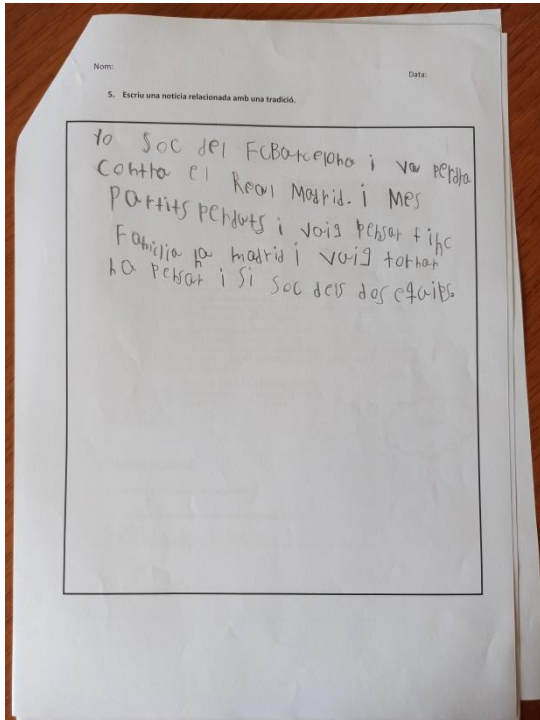 Nom:
Data:
5. Escriu una notícia relacionada amb una tradició.
Yo soc del FCBarcelona i va perdra
contra el Real Madrid. i Mes
Partits perduts i vaig pensar tinc
Familia ha madrid i vaig tornar
ha pensar i si soc dels dos equips.